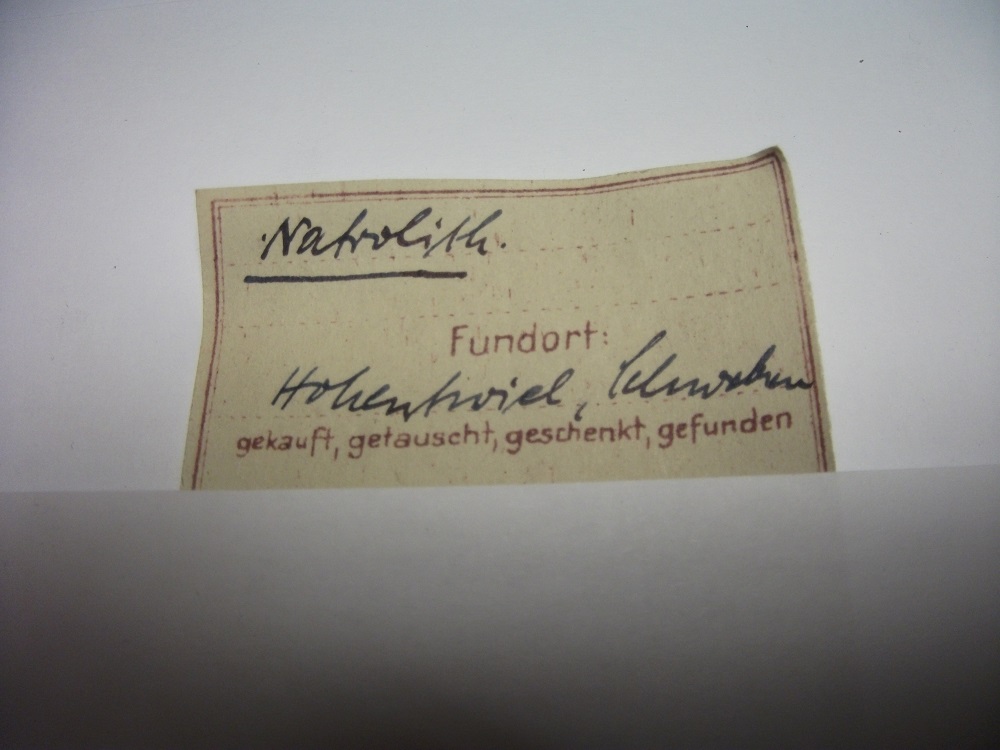 Natrolith.
Fundort:
Hohentwiel, Schwaben
gekauft, getauscht, geschenkt, gefunden